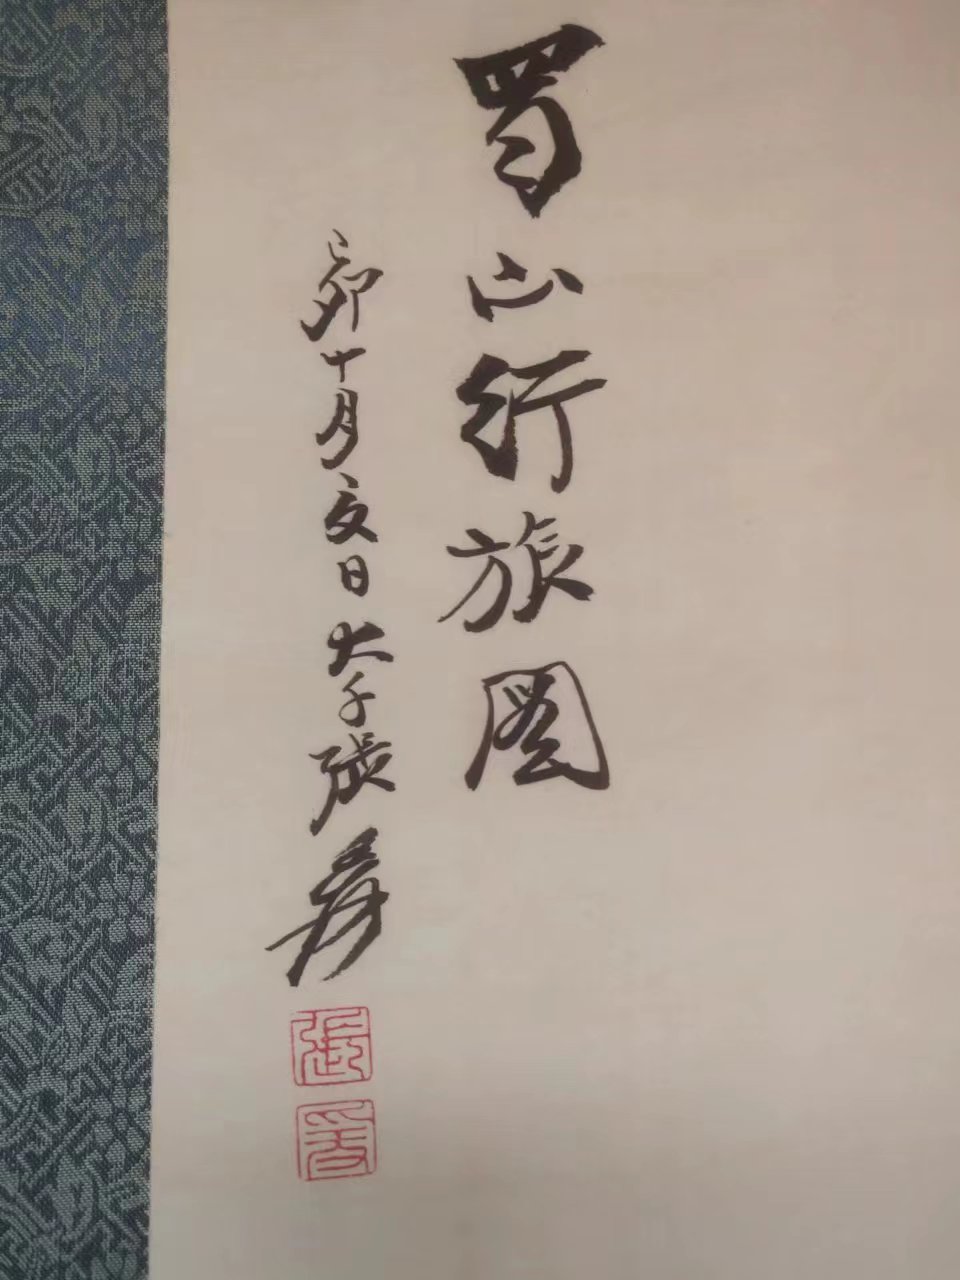 蜀山行旅图
己卯十月文日大千張爰
張
爰